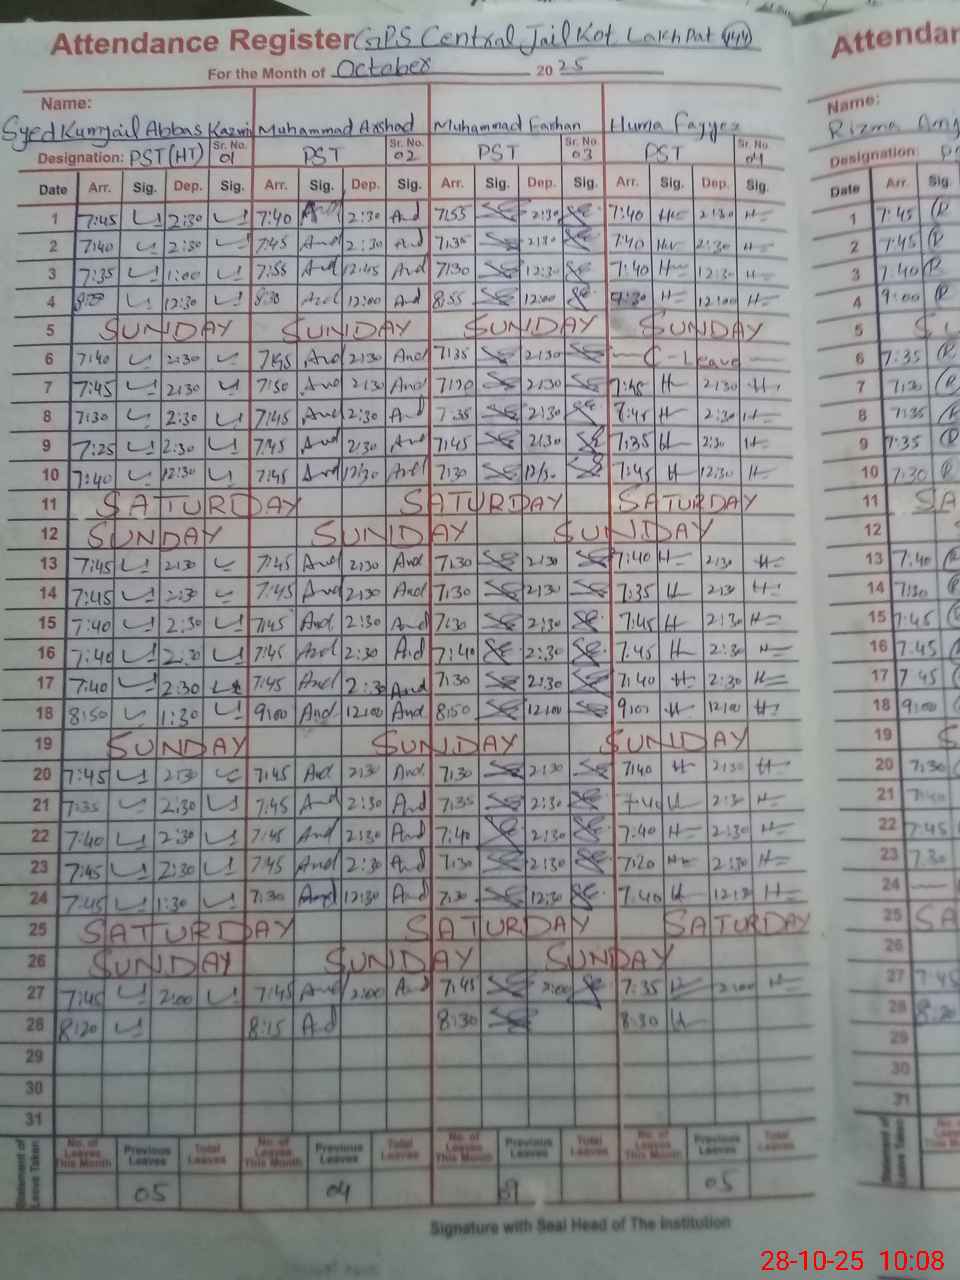 Attendance Register GPS Central Jail Kot Lakh Pat
For the Month of October 2025
Name:
Syed Kumail Abbas Kazmi Muhammad Arshad Muhammad Farhan Huma Fayyaz
Designation: PST (HT) Sr. No. 01 PST Sr. No. 02 PST Sr. No. 03 PST Sr. No. 04
Date Arr. Sig. Dep. Sig. Arr. Sig. Dep. Sig. Arr. Sig. Dep. Sig. Arr. Sig. Dep. Sig.
1 7:45 2:30 7:40 Ard 2:30 Ard 7:55 2:30 7:40 H 2:30 H
2 7:40 2:30 7:45 Ard 2:30 Ard 7:35 2:30 7:40 H 2:30 H
3 7:35 1:00 7:55 Ard 12:45 Ard 7:30 12:30 7:40 H 12:30 H
4 12:30 8:30 Ard 12:00 Ard 8:55 12:00 H 12:00 H
5 SUNDAY SUNDAY SUNDAY SUNDAY
6 7:40 2:30 7:45 Ard 2:30 Ard 7:35 2:30 C-Leave
7 7:45 2:30 7:50 Ard 2:30 Ard 2:30 7:45 H 2:30 H
8 7:30 2:30 7:45 Ard 2:30 Ard 7:35 2:30 7:45 H 2:30 H
9 7:25 2:30 7:45 Ard 2:30 Ard 7:45 2:30 7:35 H 2:30 H
10 7:40 12:30 7:45 Ard 12:30 Ard 7:30 12:30 7:45 H 12:30 H
11 SATURDAY SATURDAY SATURDAY
12 SUNDAY SUNDAY SUNDAY
13 7:45 2:30 7:45 Ard 2:30 Ard 7:30 2:30 7:40 H 2:30 H
14 7:45 2:30 7:45 Ard 2:30 Ard 7:30 2:30 7:35 H 2:30 H
15 7:40 2:30 7:45 Ard 2:30 Ard 7:30 2:30 7:45 H 2:30 H
16 7:40 2:30 7:45 Ard 2:30 Ard 7:40 2:30 7:45 H 2:30 H
17 7:40 2:30 7:45 Ard 2:30 Ard 7:30 2:30 7:40 H 2:30 H
18 8:50 1:30 9:00 Ard 12:00 Ard 8:50 12:00 9:00 H 12:00 H
19 SUNDAY SUNDAY SUNDAY
20 7:45 2:30 7:45 Ard 2:30 Ard 7:30 2:30 7:40 H 2:30 H
21 7:35 2:30 7:45 Ard 2:30 Ard 7:35 2:30 7:40 H 2:30 H
22 7:40 2:30 7:45 Ard 2:30 Ard 7:40 2:30 7:40 H 2:30 H
23 7:45 2:30 7:45 Ard 2:30 Ard 7:30 2:30 7:20 H 2:30 H
24 7:45 1:30 7:30 Ard 12:30 Ard 7:30 12:30 7:40 H 12:30 H
25 SATURDAY SATURDAY SATURDAY
26 SUNDAY SUNDAY SUNDAY
27 7:45 2:00 7:45 Ard 2:00 Ard 7:45 2:00 7:35 H 2:00 H
28 8:20 8:15 Ard 8:30 8:30 H
29
30
31
Statement of Leave Taken
No. of Leaves This Month Previous Leaves Total Leaves No. of Leaves This Month Previous Leaves Total Leaves No. of Leaves This Month Previous Leaves Total Leaves No. of Leaves This Month Previous Leaves Total Leaves
05 04 05
Signature with Seal Head of The Institution
Attendar
Name:
Rizma
Designation:
Date Arr. Sig.
1 7:45
2 7:45
3 7:40
4 9:00
5
6 7:35
7
8 7:35
9 7:35
10 7:30
11 SA
12
13 7:40
14 7:30
15 7:45
16 7:45
17 7:45
18 9:00
19 S
20 7:30
21 7:40
22 7:45
23 7:30
24
25 SA
26
27 7:45
28 8:20
29
30
31
28-10-25 10:08